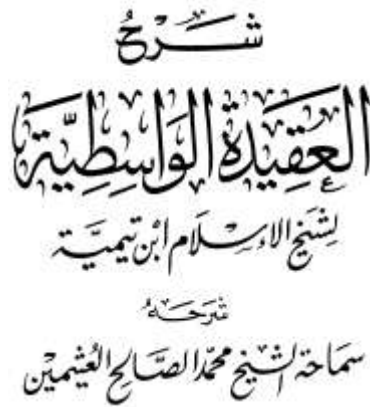 شَرْحُ
العَقِيدَةِ الوَاسِطِيَّةِ
لِشَيْخِ الإِسْلَامِ ابْنِ تَيْمِيَّةَ
شَرَحَهُ
سَمَاحَةُ الشَّيْخِ مُحَمَّد الصَّالِحِ العُثَيْمِين